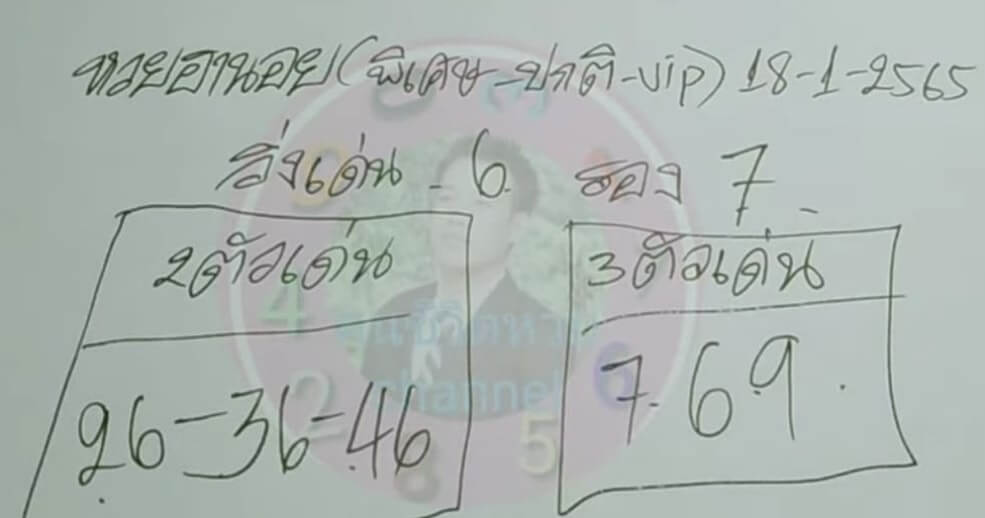 หวยฮานอย(พิเศษ-ปกติ-vip) 18-1-2565
วิ่งเด่น - 6 รอง 7
2ตัวเด่น
26-36-46
3ตัวเด่น
769
channel